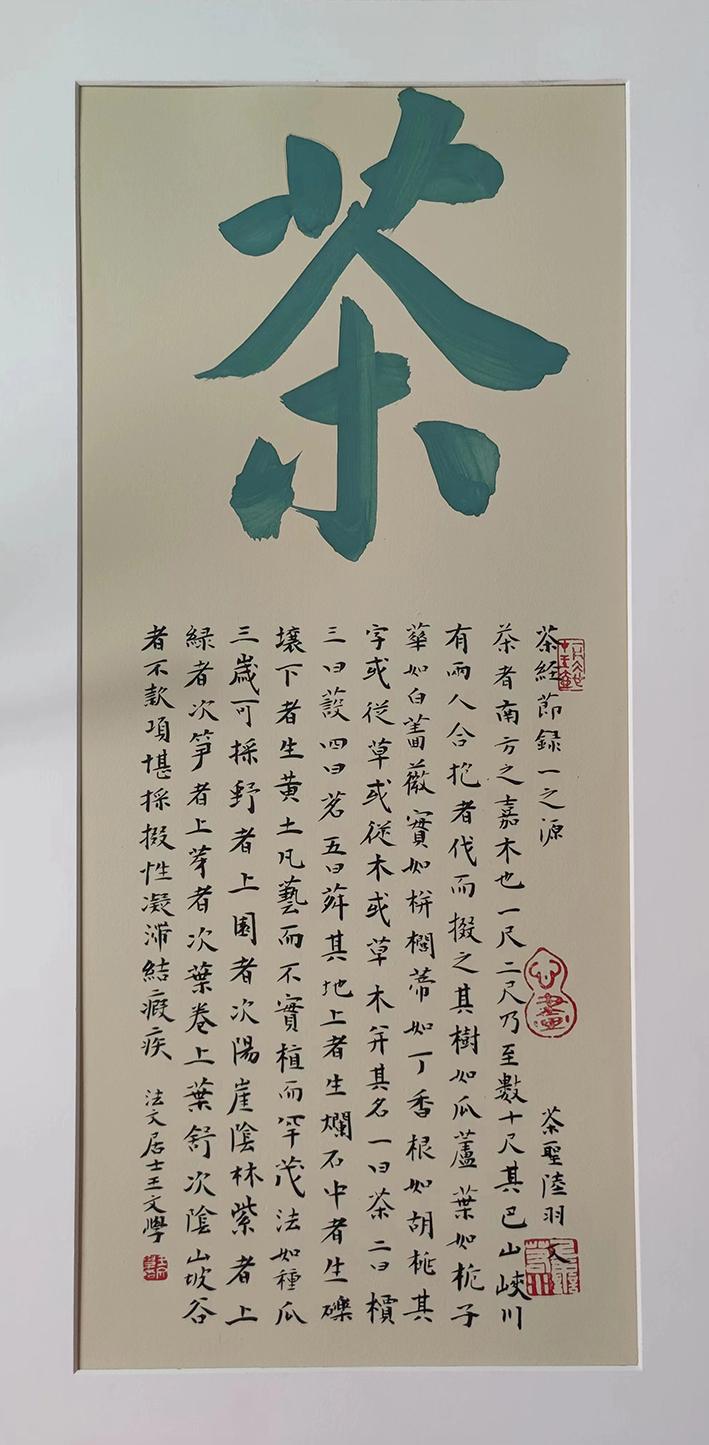 茶
茶经節録一之源
茶聖陸羽文
茶者南方之嘉木也一尺二尺乃至數十尺其巴山峽川
有兩人合抱者伐而掇之其樹如瓜蘆葉如栀子
華如白薔薇實如栟櫚蒂如丁香根如胡桃其
字或従草或従木或草木并其名一曰茶二曰檟
三曰蔎四曰茗五曰荈其地上者生爛石中者生礫
壤下者生黄土凡藝而不實植而罕茂法如種瓜
三嵗可採野者上園者次陽崖陰林紫者上
緑者次笋者上芽者次葉卷上葉舒次陰山坡谷
者不欵項堪採掇性凝滞結瘕疾
法文居士王文學